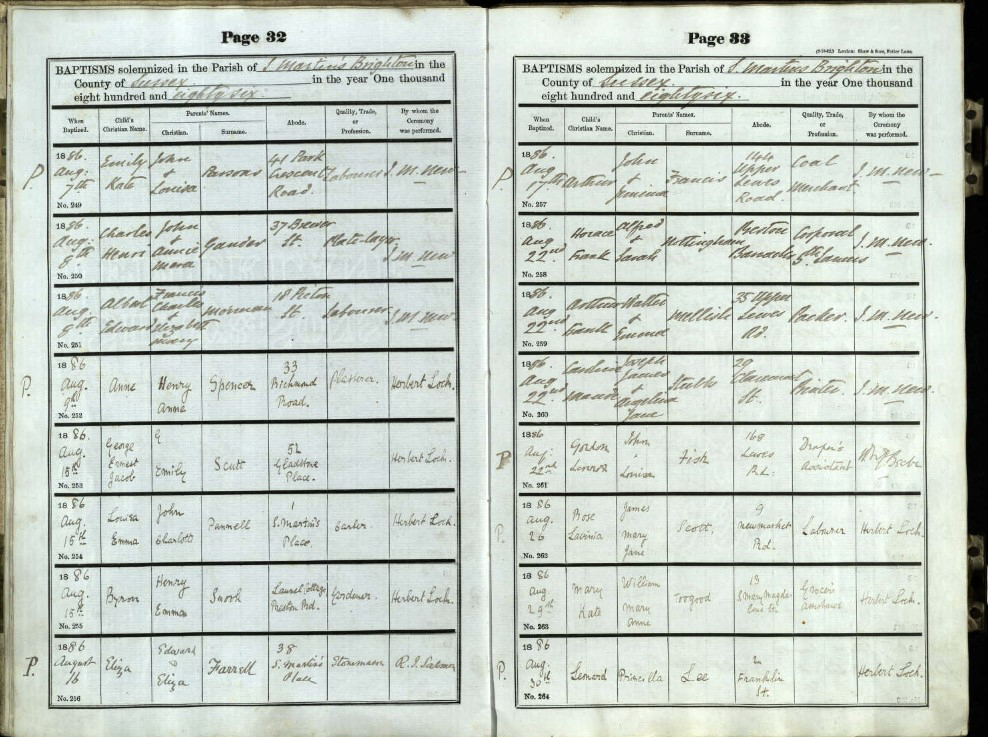 Page 32
BAPTISMS solemnized in the Parish of S. Martins Brighton in the
County of Sussex in the year One thousand
eight hundred and eighty six
When Baptized. Child's Christian Name. Parents' Names. Christian. Surname. Abode. Quality, Trade, or Profession. By whom the Ceremony was performed.
P. 1886. Aug: 7th No. 249 Emily Kate John + Louisa Parsons 41 Park Crescent Road. Labourer J. M. New
1886. Aug: 8th No. 250 Charles Henri John + Annie Gander 37 Brewer St. Plate-layer J. M. New
1886. Aug. 8th No. 251 Albert Edward Francis Charles + Elizabeth Mary Morman 18 Picton St. Labourer J. M. New
P. 1886 Aug. 9th No. 252 Anne Henry Anne Spencer 33 Richmond Road. Plasterer. Herbert Loch.
1886. Aug. 15th No. 253 George Ernest Jacob Emily Scutt 52 Gladstone Place. Herbert Loch.
1886 Aug. 15th No. 254 Louisa Emma John Charlotte Pannell 1 S. Martin's Place. Herbert Loch.
1886 Aug. 15th No. 255 Byron Henry Emma Laurel Cottage, Preston Rd. Gardener. Herbert Loch.
P. 1886 August 16 No. 256 Eliza Edward & Eliza Farrell 38 S. Martin's Place Stonemason
Page 33
(9-10-82.) London: Shaw & Sons, Fetter Lane.
BAPTISMS solemnized in the Parish of S. Martins Brighton in the
County of Sussex in the year One thousand
eight hundred and eighty six.
When Baptized. Child's Christian Name. Parents' Names. Christian. Surname. Abode. Quality, Trade, or Profession. By whom the Ceremony was performed.
P. 1886. Aug 17th No. 257 Arthur John + Jemima Francis 144 Upper Lewes Road. Coal Merchant J. M. New
1886. Aug 22nd No. 258 Horace Frank Alfred + Sarah Nottingham Preston Barracks Corporal 5th Lancers J. M. New
1886. Aug 22nd No. 259 Arthur Frank Walter + Mellish 35 Upper Lewes Rd. Packer. J. M. New
1886. Aug 22nd No. 260 Caroline Maude Joseph James + Angelina Jane Stubbs 29 St. Printer. J. M. New
P 1886 Aug: 22nd No. 261 Gordon John & Louisa Fish 168 Lewes Rd: Draper's Assistant
P. 1886 Aug. 26 No. 262 Rose Lavinia James Mary Jane Scott. 9 Newmarket Rd. Labourer Herbert Loch.
1886 Aug 29th No. 263 Mary Kate William Mary Anne Toogood 13 Grocer's Assistant Herbert Loch.
P. 1886 Aug: 30th No. 264 Leonard Priscilla Lee 2 Franklin St. Herbert Loch.